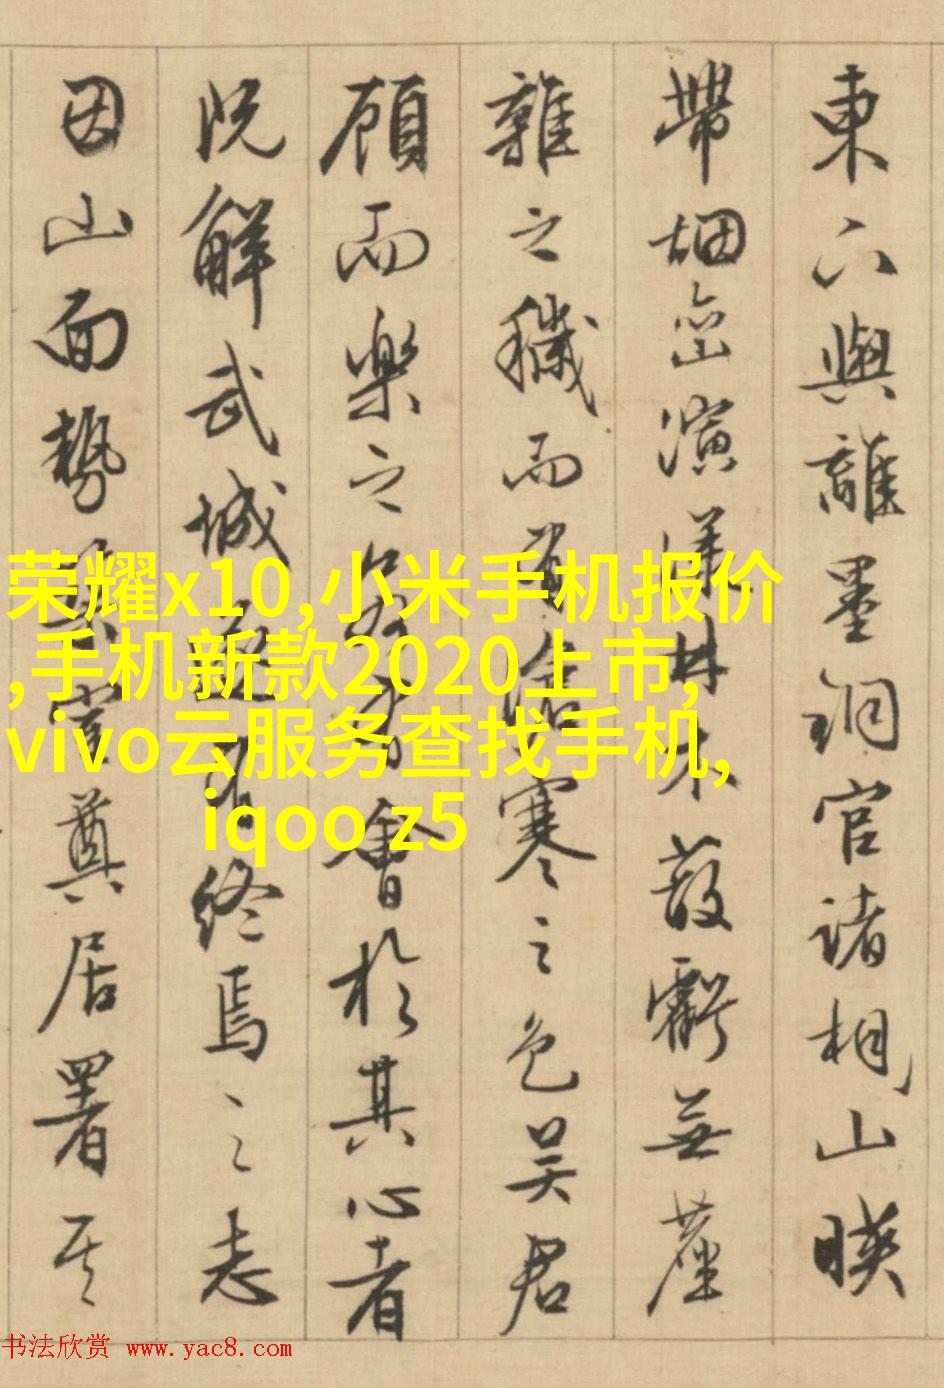 東六與離墨銅官諸相山暎
帶烟巒演漾林木蔽虧無塵
雜之穢而有 寒之色吴君
顧而樂之 會於其心者
既解武城 終焉之志
因山面勢 奠居署其
荣耀x10,小米手机报价
,手机新款2020上市,
vivo云服务查找手机,
iqoo z5
书法欣赏 www.yac8.com